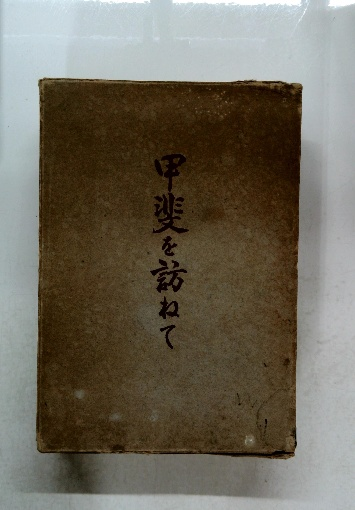 甲斐を訪ねて